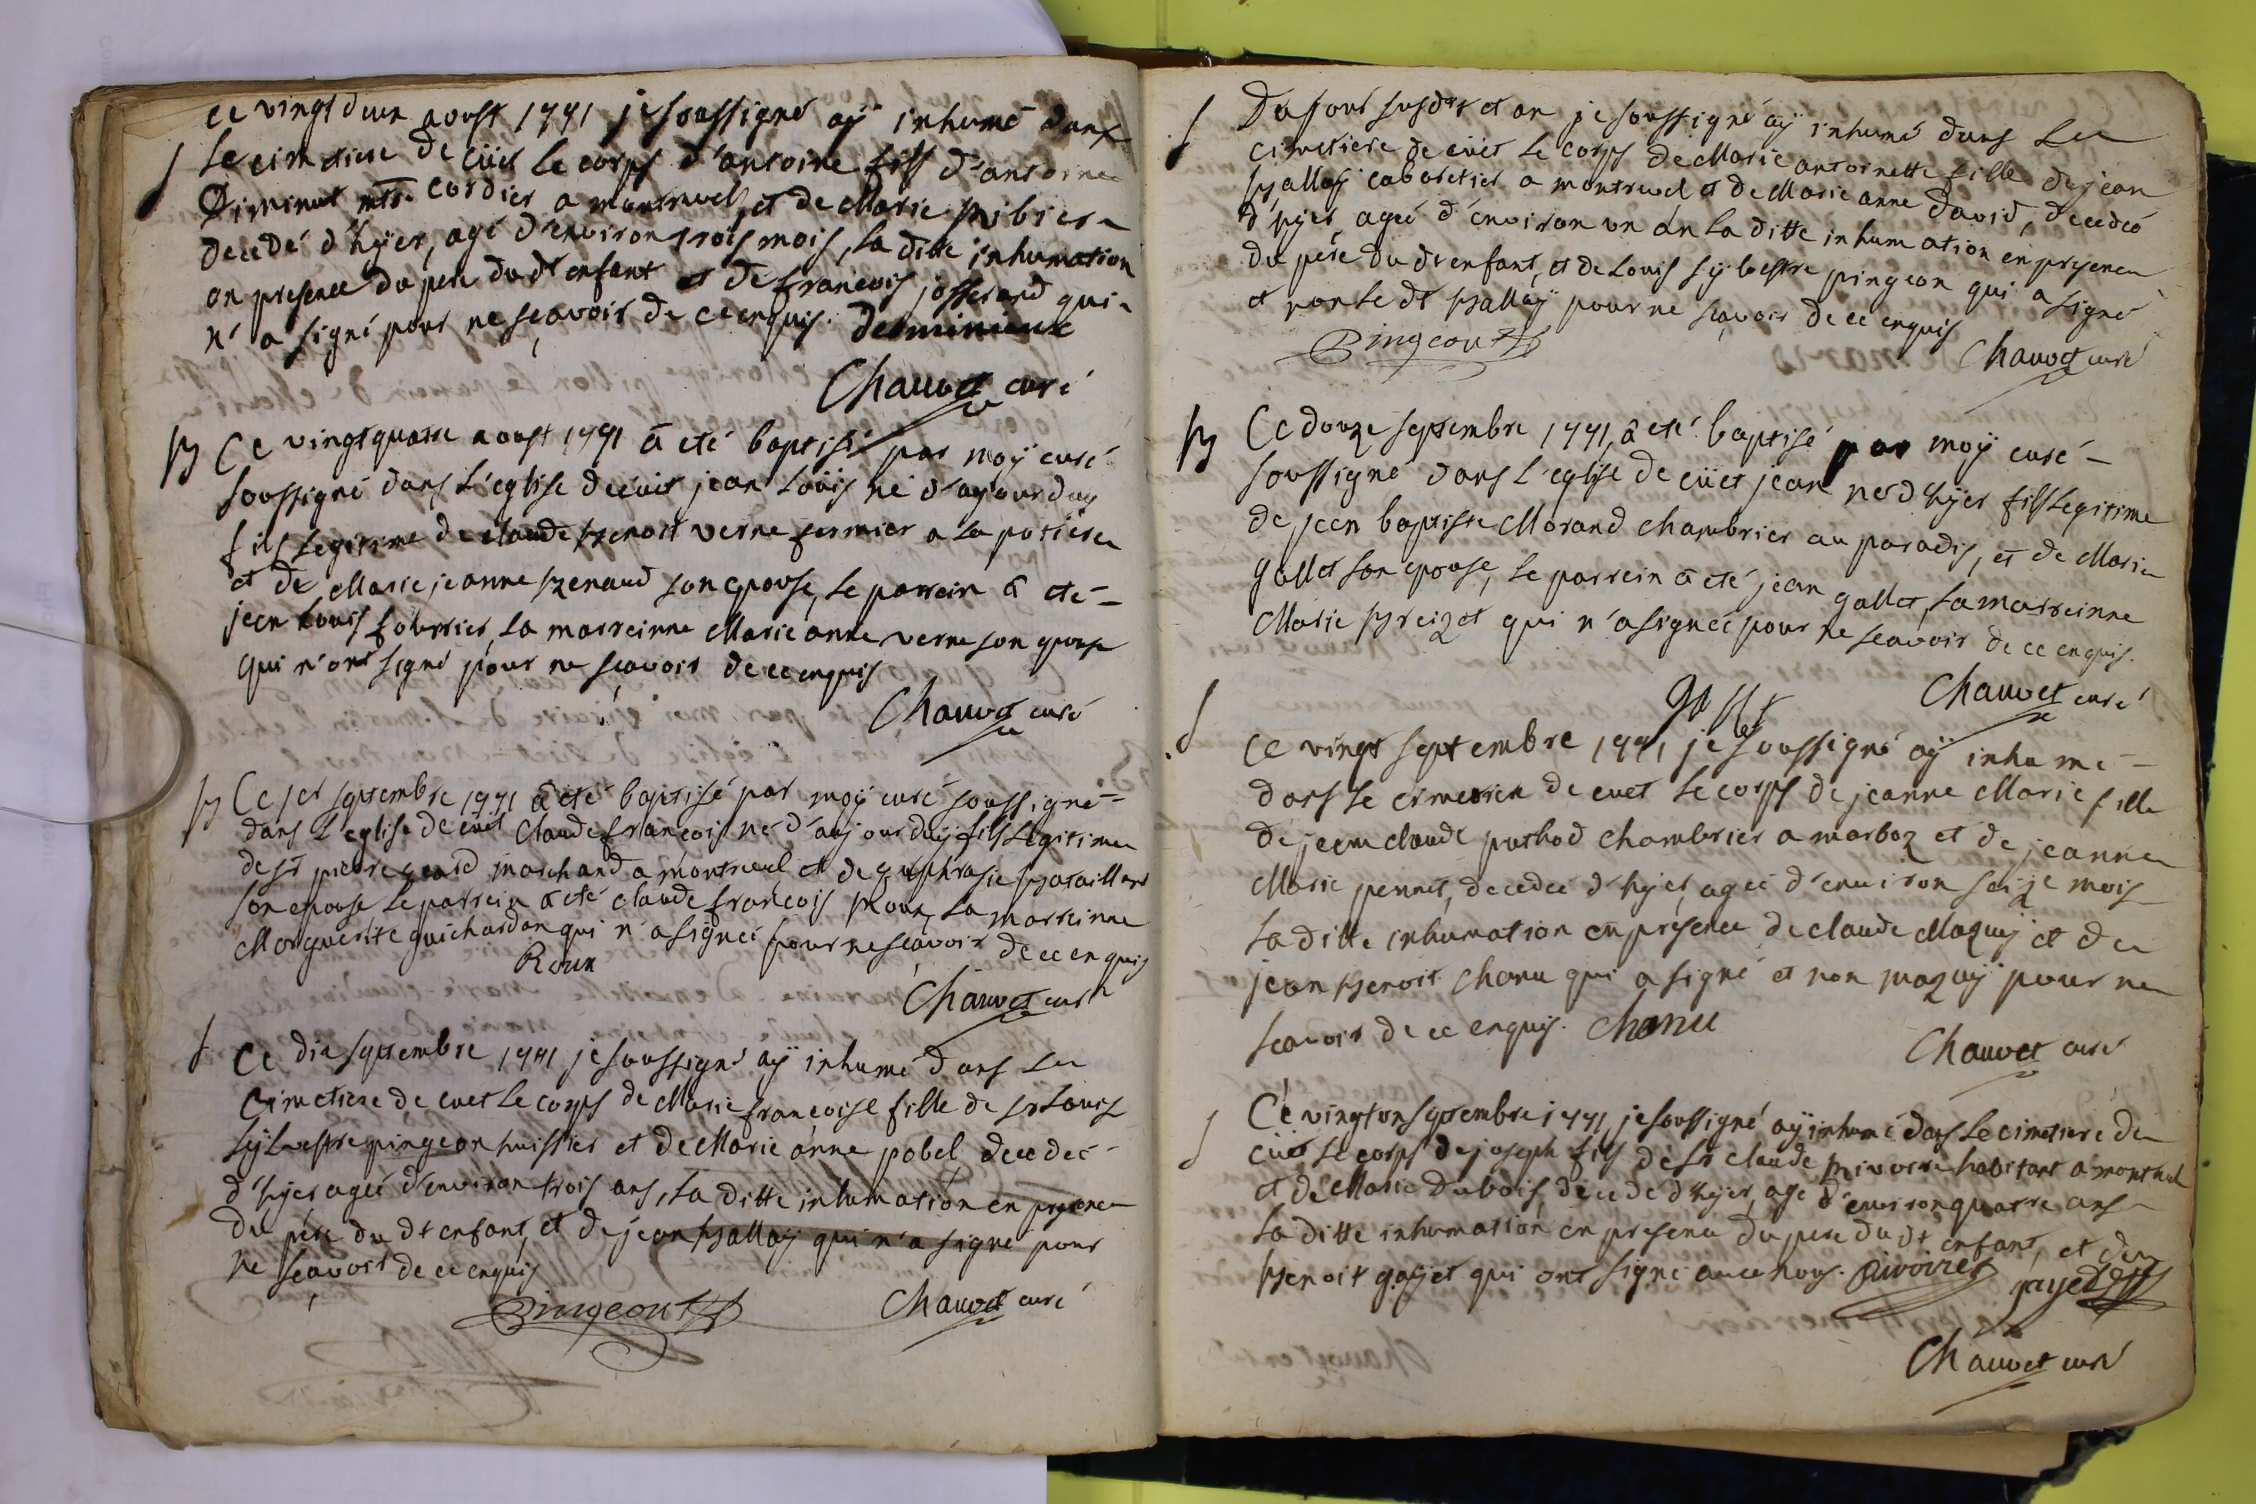 ce vingt deux aoust 1741 je soussigné aÿ inhumé dans
le cimetiere de cüet le corps d'antoine fils d'antoine
Diminiut mtre cordier a montreuel, et de Marie
decedé d'hÿer, agé d'environ trois mois, la ditte inhumation
en presence du pere du dt enfant et de francois josserand qui
n'a signé pour ne sçavoir de ce enquis. deminieux
Chauvet curé
B Ce vingtquatre aoust 1741 â eté baptisé par moÿ curé
soussigné dans l'eglise de cüet jean loüis né d'aujourduy
fils legitime de claude Benoit verne fermier a la potiere
et de Marie jeanne Renaud son epouse, le parrein â eté
jean louis fourrier, la marreinne Marie anne verne son epouse
qui n'ont signé pour ne sçavoir de ce enquis
Chauvet curé
B Ce 1er septembre 1741 â eté baptisé par moÿ curé soussigné
dans l'eglise de cüet Claude francois né d'aujourduÿ fils legitime
de sr pierre marchand a montreuel et de
son epouse le parrein â eté claude francois Roux, la marreinne
Marguerite guichardon qui n'a signée pour ne sçavoir de ce enquis
Roux
Chauvet curé
S Ce dix septembre 1741 je soussigné aÿ inhumé dans le
Cimetiere de cuet le corps de Marie francoise fille de sr Louis
sÿlvestre pingeon huissier et de Marie anne pobel decedeé
d'hÿer ageé d'environ trois ans, la ditte inhumation en presence
du pére du dt enfant, et de jean Ballaÿ qui n'a signé pour
ne sçavoir de ce enquis
Pingeon
Chauvet curé
S Du jour susdit et an je soussigné aÿ inhumé dans le
cimetiere de cüet le corps de Marie antoinette fille de jean
Ballaÿ cabaretier a montreuel et de Marie anne david, decedeé
d'hÿer, ageé d'environ un an la ditte inhumation en presence
du pére du dt enfant, et de louis sÿlvestre pingeon qui a signé
et non le dt Ballaÿ pour ne sçavoir de ce enquis
Pingeon
Chauvet curé
B Ce douze septembre 1741, â eté baptisé par moÿ curé
soussigné dans l'eglise de cüet jean né d'hÿer fils legitime
de jean baptiste Morand chambrier au paradis, et de Marie
gallet son epouse, le parrein â eté jean gallet, la marreinne
Marie Breizet qui n'a signeé pour ne sçavoir de ce enquis.
gallet
Chauvet curé
S Ce vingt septembre 1741 je soussigné aÿ inhumé
dans le cimetiere de cuet le corps de jeanne Marie fille
de jean claude puthod chambrier a marboz et de jeanne
Marie pennet, decedeé d'hÿer, ageé d'environ seize mois
la ditte inhumation en presence de claude Mazuÿ et de
jean Benoit chanu qui a signé et non mazuÿ pour ne
scavoir de ce enquis. Chanu
Chauvet curé
S Ce vingt un septembre 1741 je soussigné aÿ inhumé dans le cimetiere de
cüet le corps de joseph fils de sr claude Rivoire habitant a montreuel
et de Marie Dubois, decedé d'hÿer, agé d'environ quatre ans
la ditte inhumation en presence du pere du dt enfant, et de
Benoit gaÿet qui ont signé avec nous. Rivoire gayet
Chauvet curé